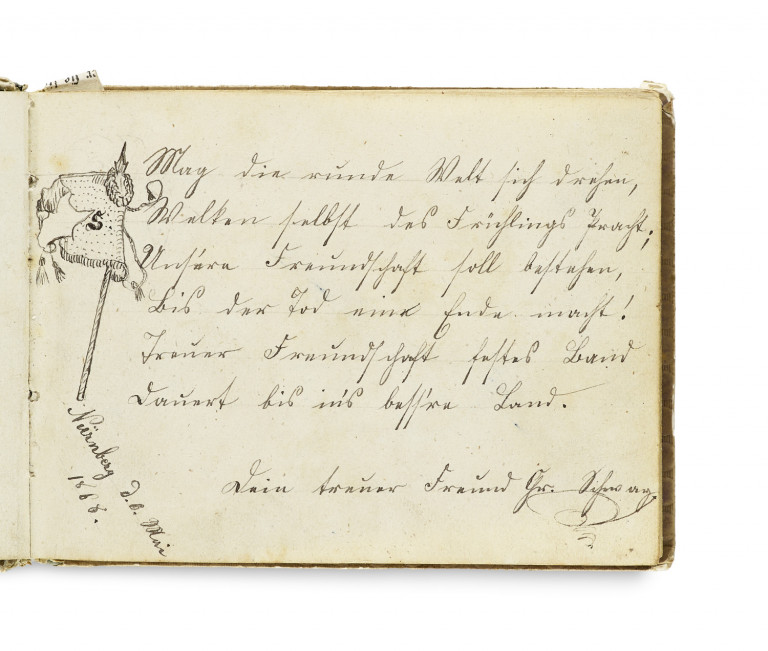 S
Mag die runde Welt sich drehen,
Welken selbst des Frühlings Pracht,
Uns're Freundschaft soll bestehen,
Bis der Tod eine Ende macht!
Treuer Freundschaft festes Band
Dauert bis in's bess're Land.
Dein treuer Freund
Nürnberg d. 6. Mai
1868.